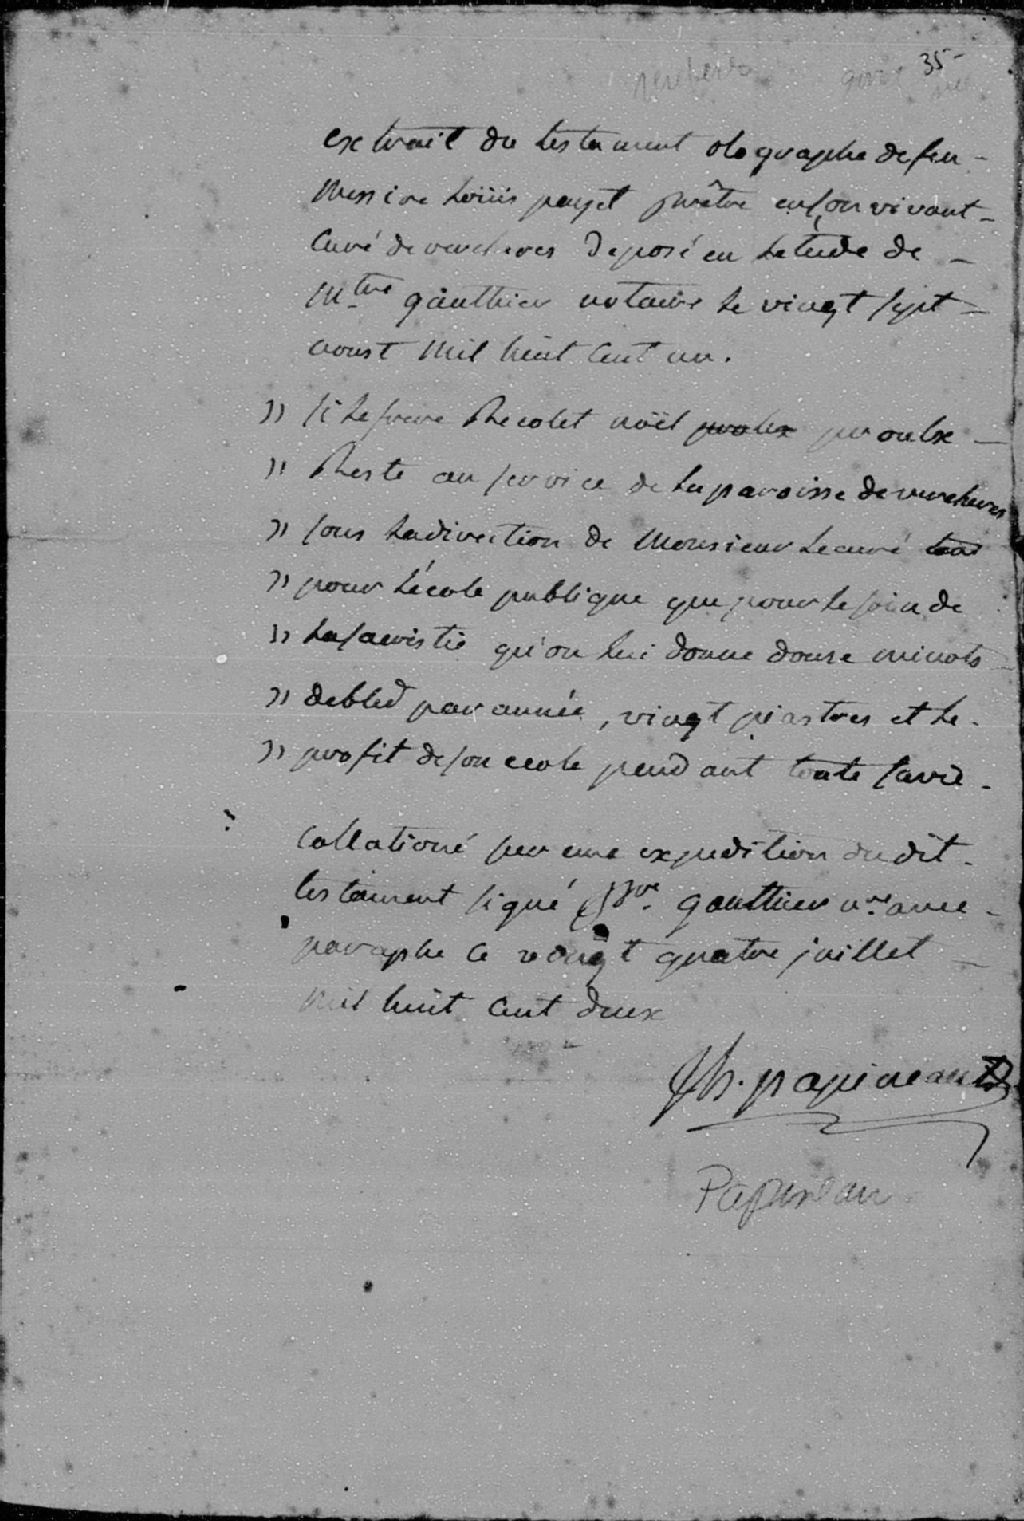 35
extrait du testament olographe defeu
Messire Loüis payet prêtre enson vivant
Curé de vercheres Deposé en Letude de
Mtre gauthier notaire le vingt sept
aoust Mil huit Cent un.
" si Le frere Recolet noël proulx proulx
" Reste au service de La paroisse de vercheres
" sous Ladirection de Monsieur Lecuré tant
" pour L'école publique que pour Le soin de
" La sacristie qu'on Lui donne douse minots
" debled par année, vingt piastres et Le
" profit de son ecole pendant toute savie
Collationé sur une expedition du dit
testament signé gauthier nre avec
paraphe Ce vingt quatre juillet
Mil huit Cent deux
1802
Jh. papineau
Papineau